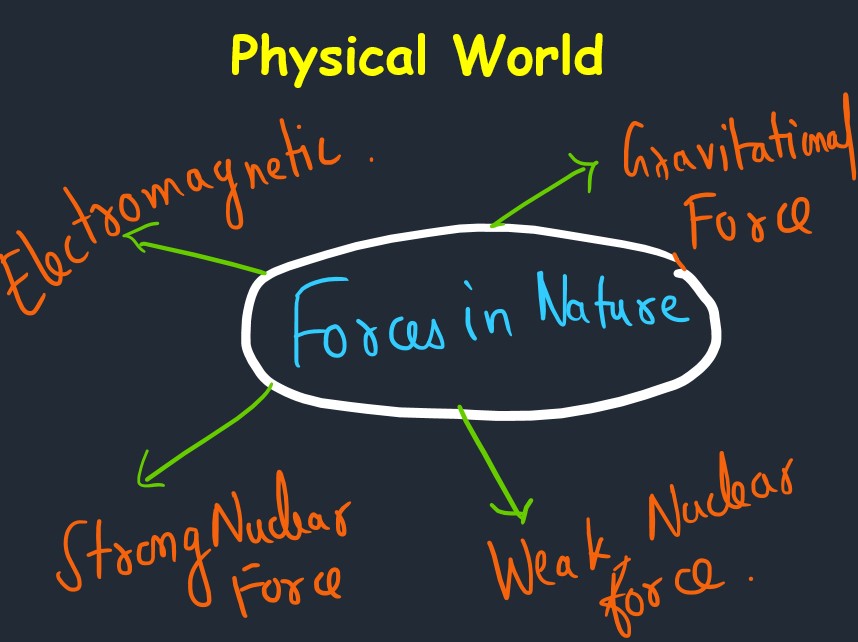 Physical World
Electromagnetic.
Gravitational
Force
Forces in Nature
Strong Nuclear
Force
Weak Nuclear
force.